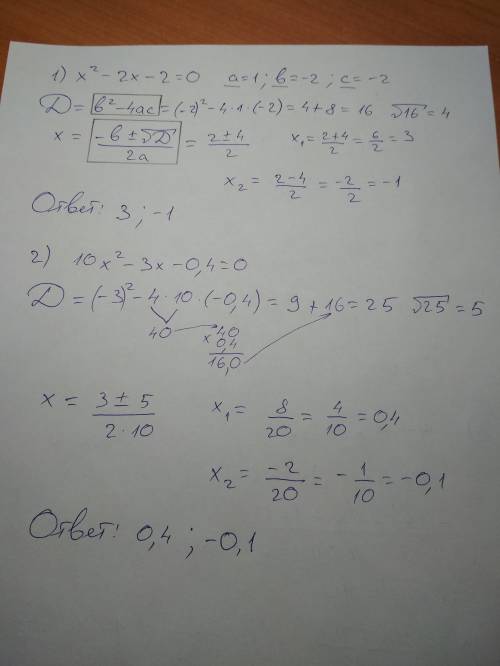 1) x² - 2x - 2 = 0   a=1 ; b=-2 ; c=-2
D = b²-4ac = (-2)² - 4·1·(-2) = 4+8 = 16   √16 = 4
x = (-b ± √D)/2a = (2±4)/2   x₁ = (2+4)/2 = 6/2 = 3
x₂ = (2-4)/2 = -2/2 = -1
Ответ: 3 ; -1
2) 10x² - 3x - 0,4 = 0
D = (-3)² - 4·10·(-0,4) = 9 + 16 = 25   √25 = 5
40   40
× 0,4
16,0
x = (3 ± 5)/(2·10)   x₁ = 8/20 = 4/10 = 0,4
x₂ = -2/20 = -1/10 = -0,1
Ответ: 0,4 ; -0,1